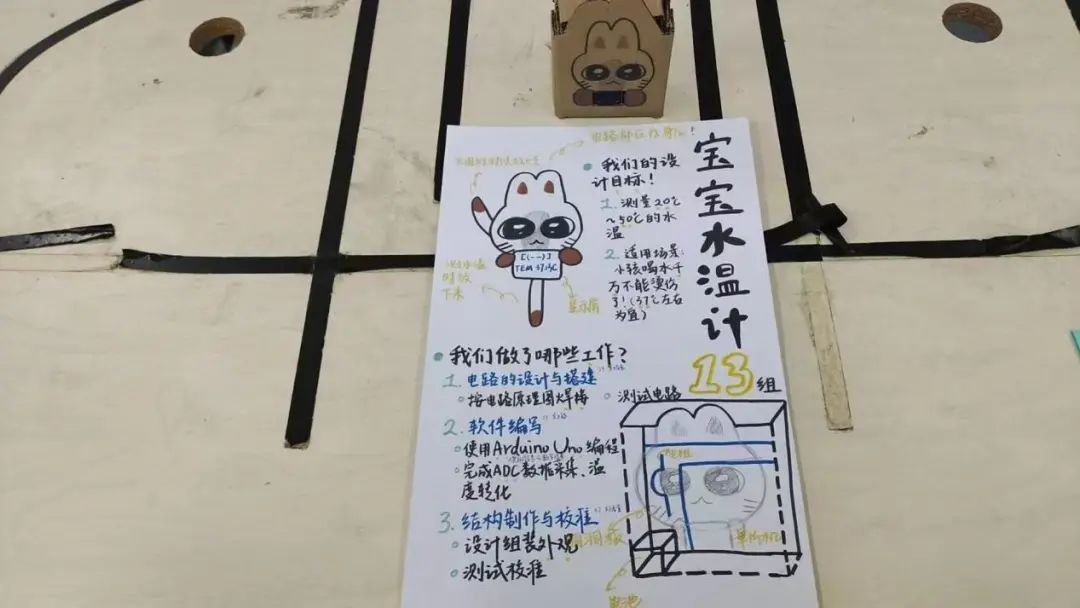 宝宝水温计
13组
我们的设
计目标!
1. 测量20℃
~50℃的水
温
2. 适用场景:
小孩喝水千
万不能烫伤
了!(37℃左右
为宜)
[(--)]
TEM 37.3C
测水温
时放
下来
显示屏
我们做了哪些工作?
1. 电路的设计与搭建
按电路原理图焊接
测试电路
2. 软件编写
使用Arduino Uno编程
完成ADC数据采集、温
度转化
3. 结构制作与校准
设计组装外观
测试校准
单片机
电池